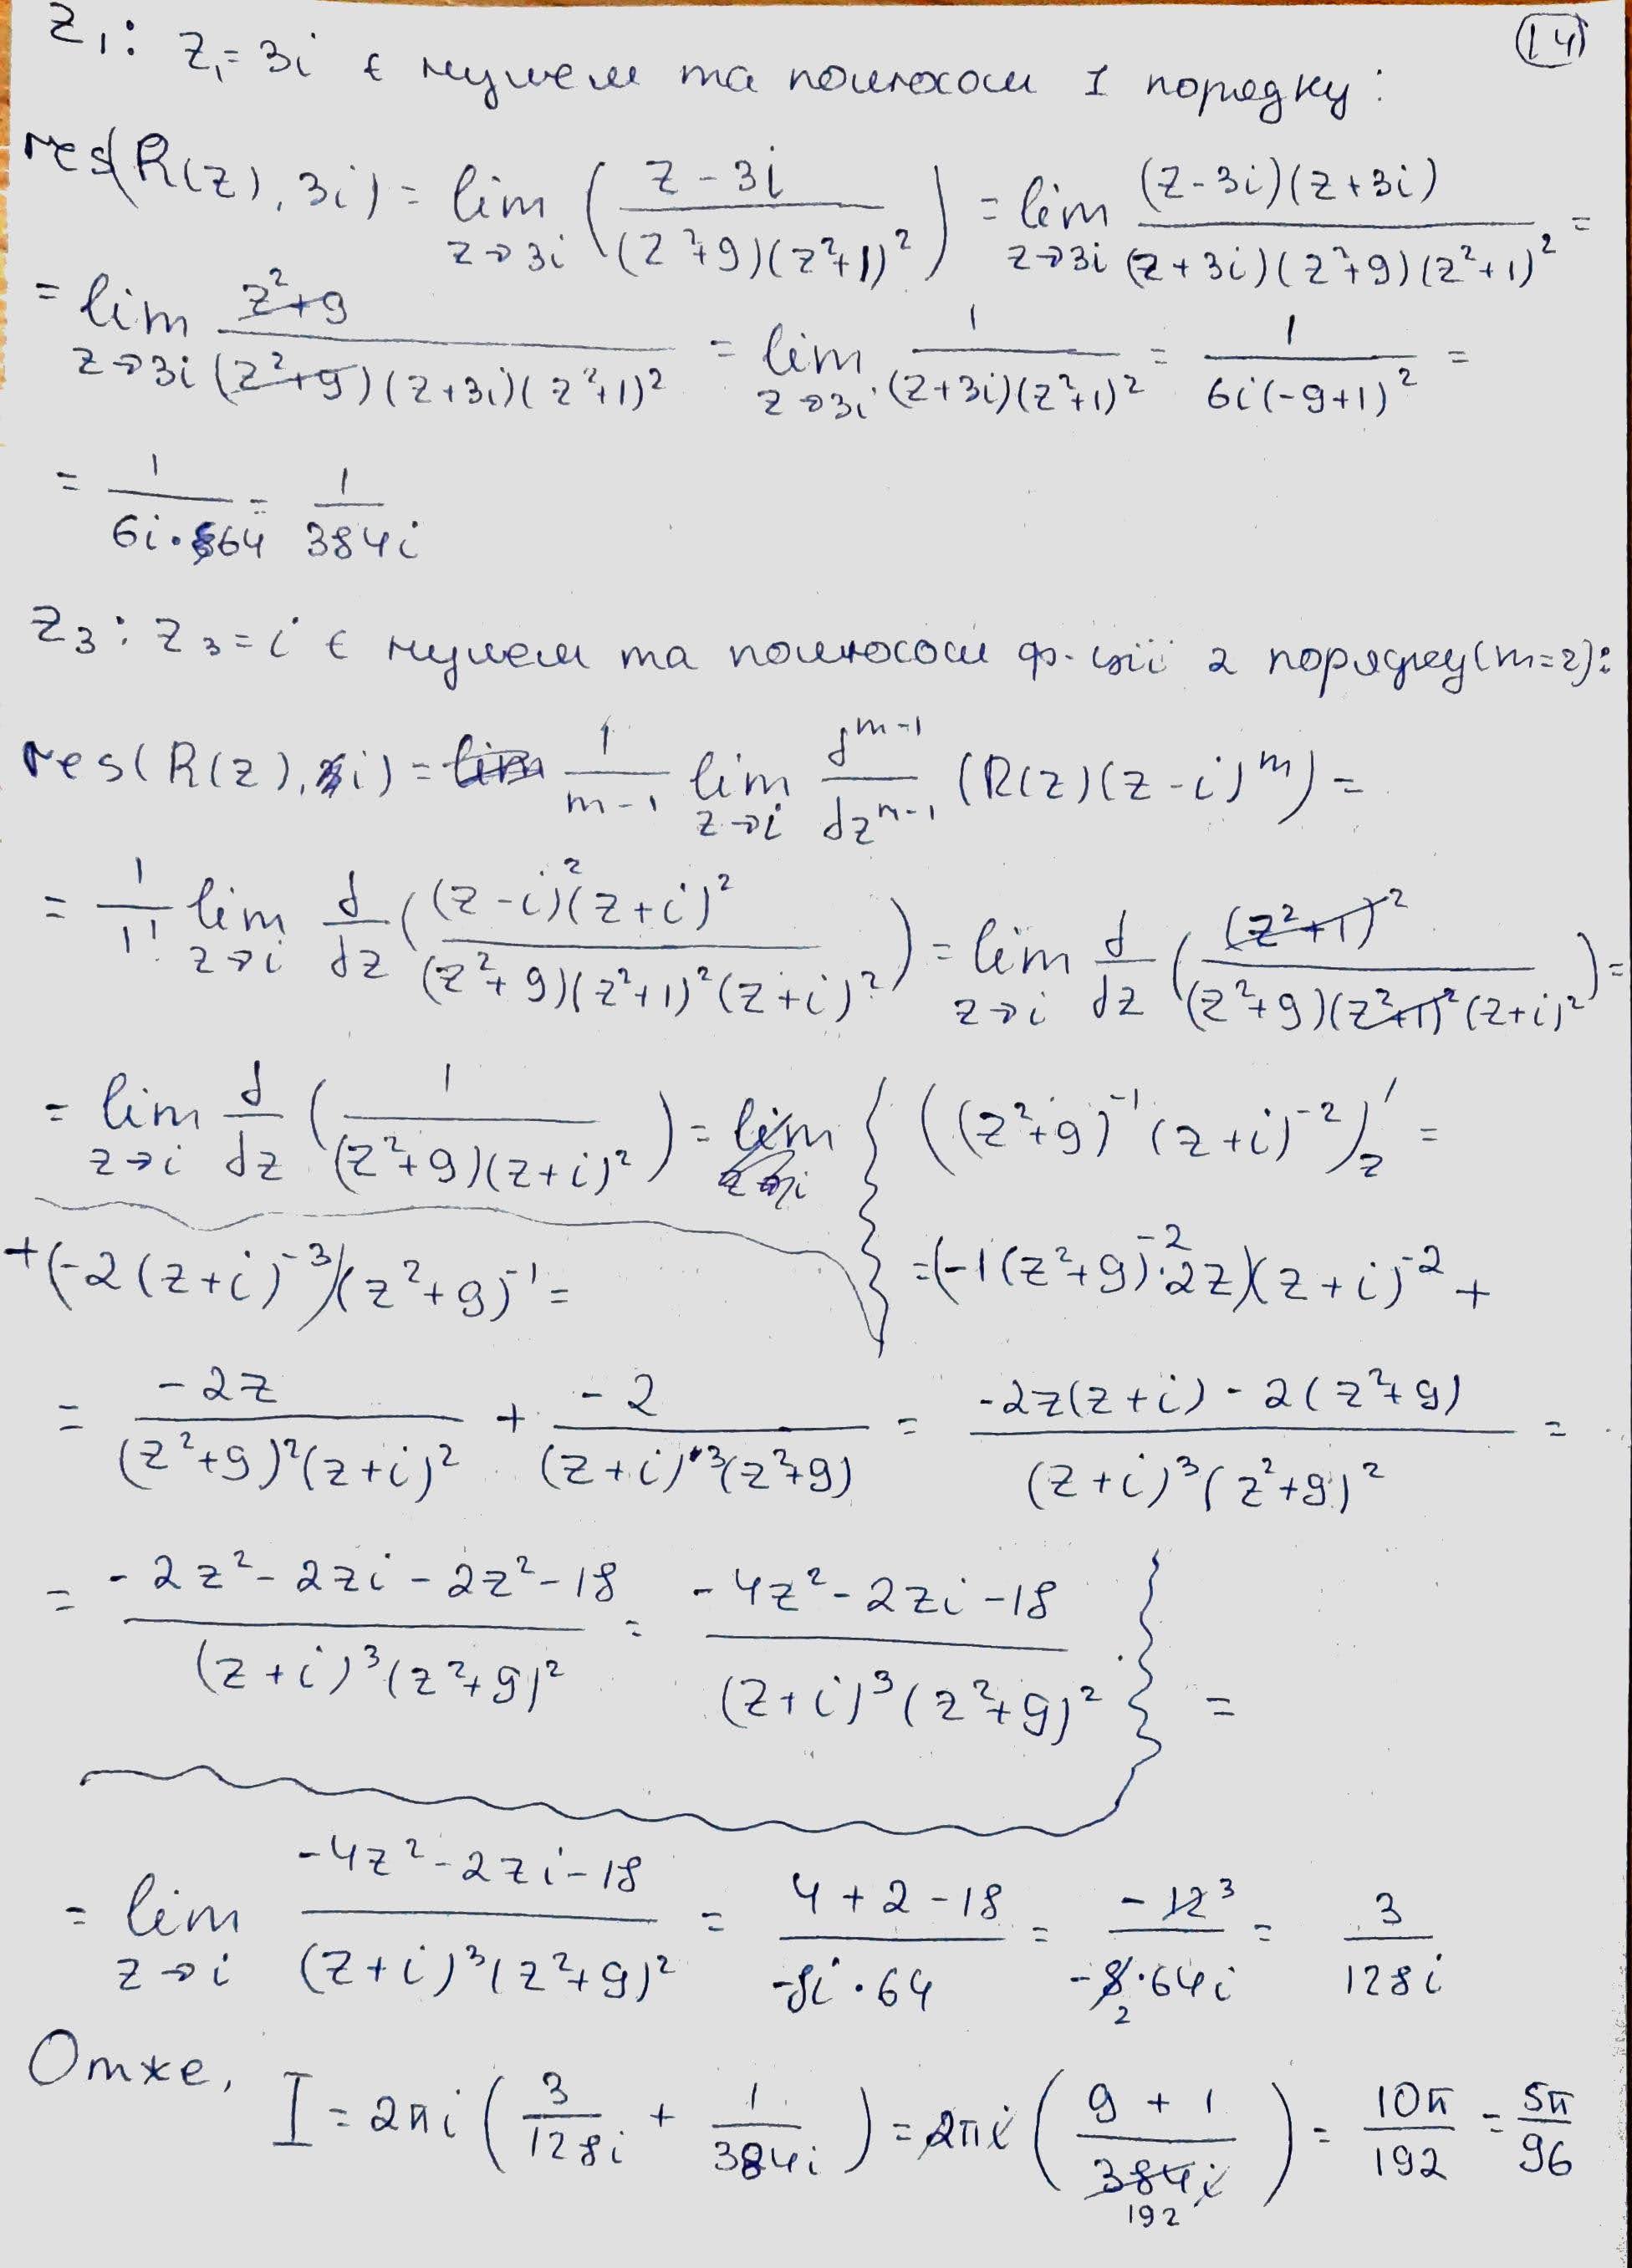 (14)
z₁: z₁ = 3i є нулем та полюсом I порядку:
res(R(z), 3i) = lim_{z→3i} ( (z - 3i) / ((z²+9)(z²+1)²) ) = lim_{z→3i} (z-3i)(z+3i) / ((z+3i)(z²+9)(z²+1)²) =
= lim_{z→3i} (z²+9) / ((z²+9)(z+3i)(z²+1)²) = lim_{z→3i} 1 / ((z+3i)(z²+1)²) = 1 / (6i(-9+1)²) =
= 1 / (6i·64) = 1 / (384i)
z₃: z₃ = i є нулем та полюсом ф-ції 2 порядку (m=2):
res(R(z), i) = 1/(m-1) lim_{z→i} d^{m-1}/dz^{m-1} (R(z)(z-i)^m) =
= 1/1! lim_{z→i} d/dz ( (z-i)²(z+i)² / ((z²+9)(z²+1)²(z+i)²) ) = lim_{z→i} d/dz ( (z²+1)² / ((z²+9)(z²+1)²(z+i)²) ) =
= lim_{z→i} d/dz ( 1 / ((z²+9)(z+i)²) ) = { ((z²+9)⁻¹(z+i)⁻²)'_z =
= (-1(z²+9)⁻²·2z)(z+i)⁻² +
+ (-2(z+i)⁻³)(z²+9)⁻¹ =
= -2z / ((z²+9)²(z+i)²) + -2 / ((z+i)³(z²+9)) = (-2z(z+i) - 2(z²+9)) / ((z+i)³(z²+9)²) =
= (-2z² - 2zi - 2z² - 18) / ((z+i)³(z²+9)²) = (-4z² - 2zi - 18) / ((z+i)³(z²+9)²) } =
= lim_{z→i} (-4z² - 2zi - 18) / ((z+i)³(z²+9)²) = (4 + 2 - 18) / (-8i·64) = -12 3 / (-8 2·64i) = 3 / (128i)
Отже, I = 2πi ( 3/(128i) + 1/(384i) ) = 2πi ( (9 + 1) / (384i) 192 ) = 10π/192 = 5π/96